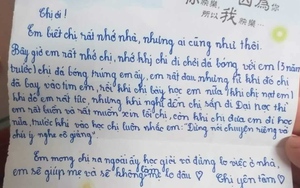 你 快樂 因為你
所以我快樂
Chị ơi!
Em biết chị rất nhớ nhà, nhưng ai cũng như thôi.
Bây giờ em rất nhớ chị, nhớ khi chị đi chơi đá bóng với em (3 năm
trước) chị đá bóng trúng em ấy, em rất đau nhưng
đã bay vào tìm em, rồi khi chị lấy học em nữa (khi chị nạt em)
khi đó em rất tức, nhưng khi nghĩ đến chị sắp đi Đại học thì
em rất buồn và rất muốn xin lỗi chị, còn khi chị đưa em đi học
nữa, trước khi vào học chị luôn nhắc em: "Đừng nói chuyện riêng và
chú ý nghe cô giảng"
Em mong chị ra ngoài ấy học giỏi và đừng lo việc ở nhà,
em sẽ giúp mẹ và sẽ không làm mẹ lo đâu ♡ Chị yên tâm ♡